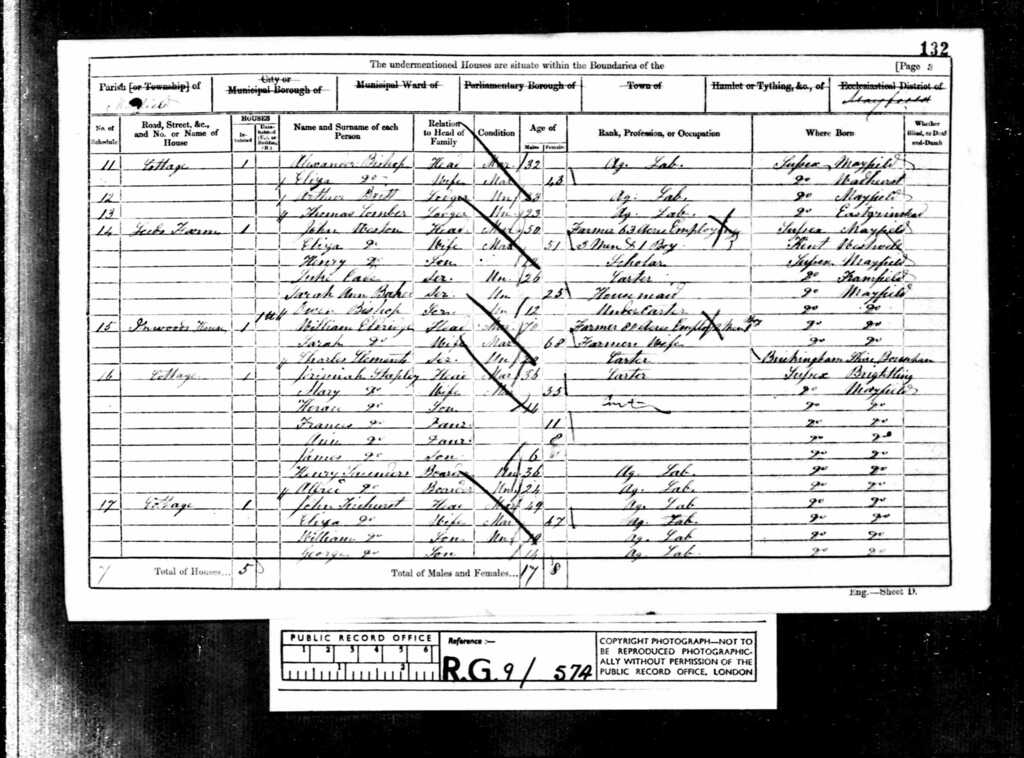 132
The undermentioned Houses are situate within the Boundaries of the [Page 3
Parish [or Township] of City or Municipal Borough of Municipal Ward of Parliamentary Borough of Town of Hamlet or Tything, &c., of Ecclesiastical District of
Mayfield
No. of Schedule Road, Street, &c., and No. or Name of House HOUSES Inhabited Name and Surname of each Person Relation to Head of Family Condition Age of Males Females Rank, Profession, or Occupation Where Born Whether Blind, or Deaf-and-Dumb
11 Cottage 1 Alexander Bishop Head Mar 32 Ag. Lab. Sussex Mayfield
Eliza Do Wife Mar 43 Do Wadhurst
12 Arthur Britt Lodger Un 33 Ag. Lab. Do Mayfield
13 Thomas Lodger Un 23 Ag. Lab. Do Eastgrinstead
14 Farm 1 John Weston Head Mar 50 Farmer 63 Acres Employing Sussex Mayfield
Eliza Do Wife Mar 51 3 Men & 1 Boy Kent
Henry Do Son Scholar Sussex Mayfield
Ser. Un 26 Carter Do Framfield
Sarah Ann Baker Ser. Un 25 Housemaid Do Mayfield
Owen Bishop Ser. Un 12 Under Carter Do Do
15 House 1 William Head Mar 70 Farmer Acres Employ Do Do
Sarah Do Wife Mar 68 Farmers Wife Do Do
Charles Ser. Un Carter Buckingham Shire
16 Cottage 1 Head Mar 36 Carter Sussex Brightling
Mary Do Wife Mar 35 Do Mayfield
Horace Do Son 14 Do Do
Frances Do Daur 11 Do Do
Ann Do Daur 8 Do Do
James Do Son 6 Do Do
Henry Saunders Boarder Un 36 Ag. Lab. Do Do
Alfred Do Boarder Un 24 Ag. Lab. Do Do
17 Cottage 1 John Head Mar 49 Ag. Lab Do Do
Eliza Do Wife Mar 47 Ag. Lab. Do Do
William Do Son Un Ag. Lab Do Do
George Do Son 14 Ag. Lab Do Do
7 Total of Houses... 5 Total of Males and Females... 17 8
Eng.—Sheet D.
PUBLIC RECORD OFFICE
1 2 3 4 5 6
1 2
Reference :—
R.G. 9/ 574
COPYRIGHT PHOTOGRAPH—NOT TO
BE REPRODUCED PHOTOGRAPHIC-
ALLY WITHOUT PERMISSION OF THE
PUBLIC RECORD OFFICE, LONDON